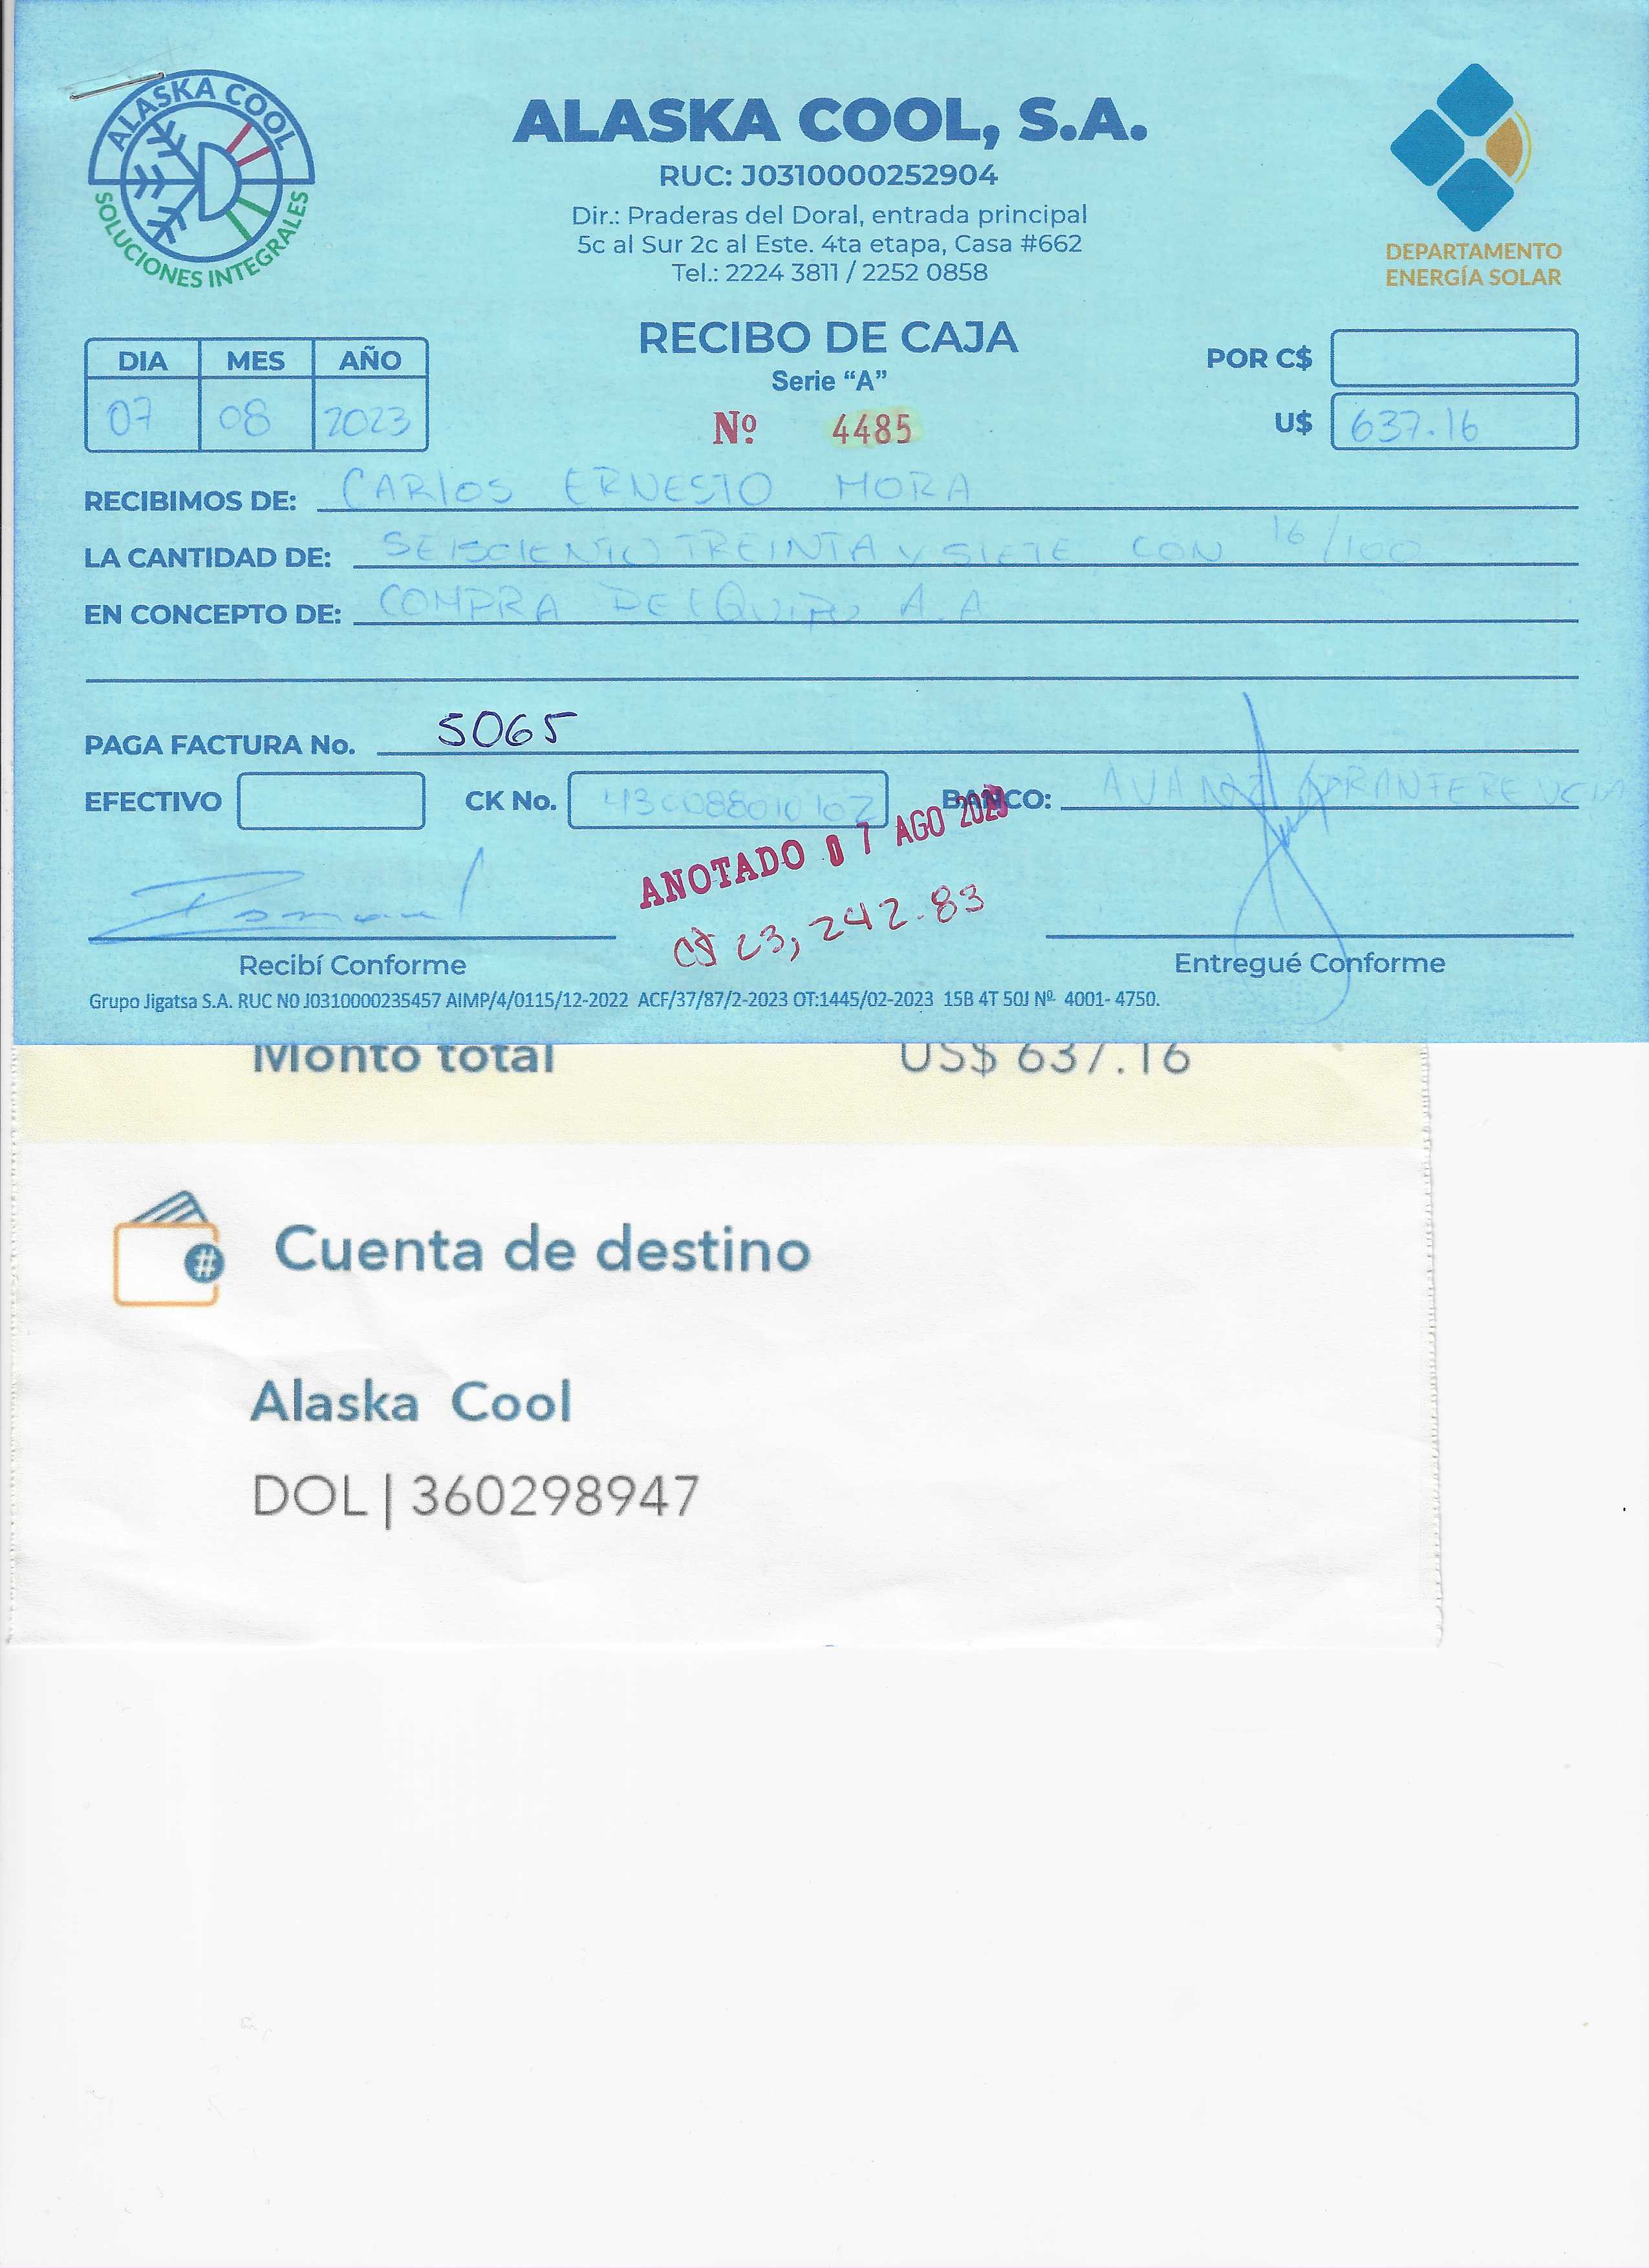 ALASKA COOL
SOLUCIONES INTEGRALES
ALASKA COOL, S.A.
RUC: J0310000252904
Dir.: Praderas del Doral, entrada principal
5c al Sur 2c al Este. 4ta etapa, Casa #662
Tel.: 2224 3811 / 2252 0858
DEPARTAMENTO
ENERGÍA SOLAR
RECIBO DE CAJA
Serie “A”
Nº 4485
DIA MES AÑO
07 08 2023
POR C$
U$ 637.16
RECIBIMOS DE: CARLOS ERNESTO MORA
LA CANTIDAD DE: SEISCIENTO TREINTA Y SIETE CON 16/100
EN CONCEPTO DE: COMPRA DE EQUIPO A.A
PAGA FACTURA No. 5065
EFECTIVO CK No. BANCO: TRANFERENCIA
ANOTADO 07 AGO 2023
C$ 23,242.83
Recibí Conforme
Entregué Conforme
Grupo Jigatsa S.A. RUC N0 J0310000235457 AIMP/4/0115/12-2022 ACF/37/87/2-2023 OT:1445/02-2023 15B 4T 50J Nº 4001- 4750.
Monto total US$ 637.16
# Cuenta de destino
Alaska Cool
DOL | 360298947